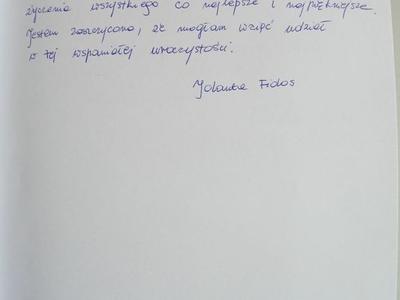 życzenia wszystkiego co najlepsze i najpiękniejsze.
Jestem zaszczycona, że mogłam wziąć udział
w tej wspaniałej uroczystości.
Jolanta Fidos